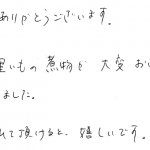 ありがとうございます。
里いもの煮物が 大変 おい
ました。
して頂けると、嬉しいです。